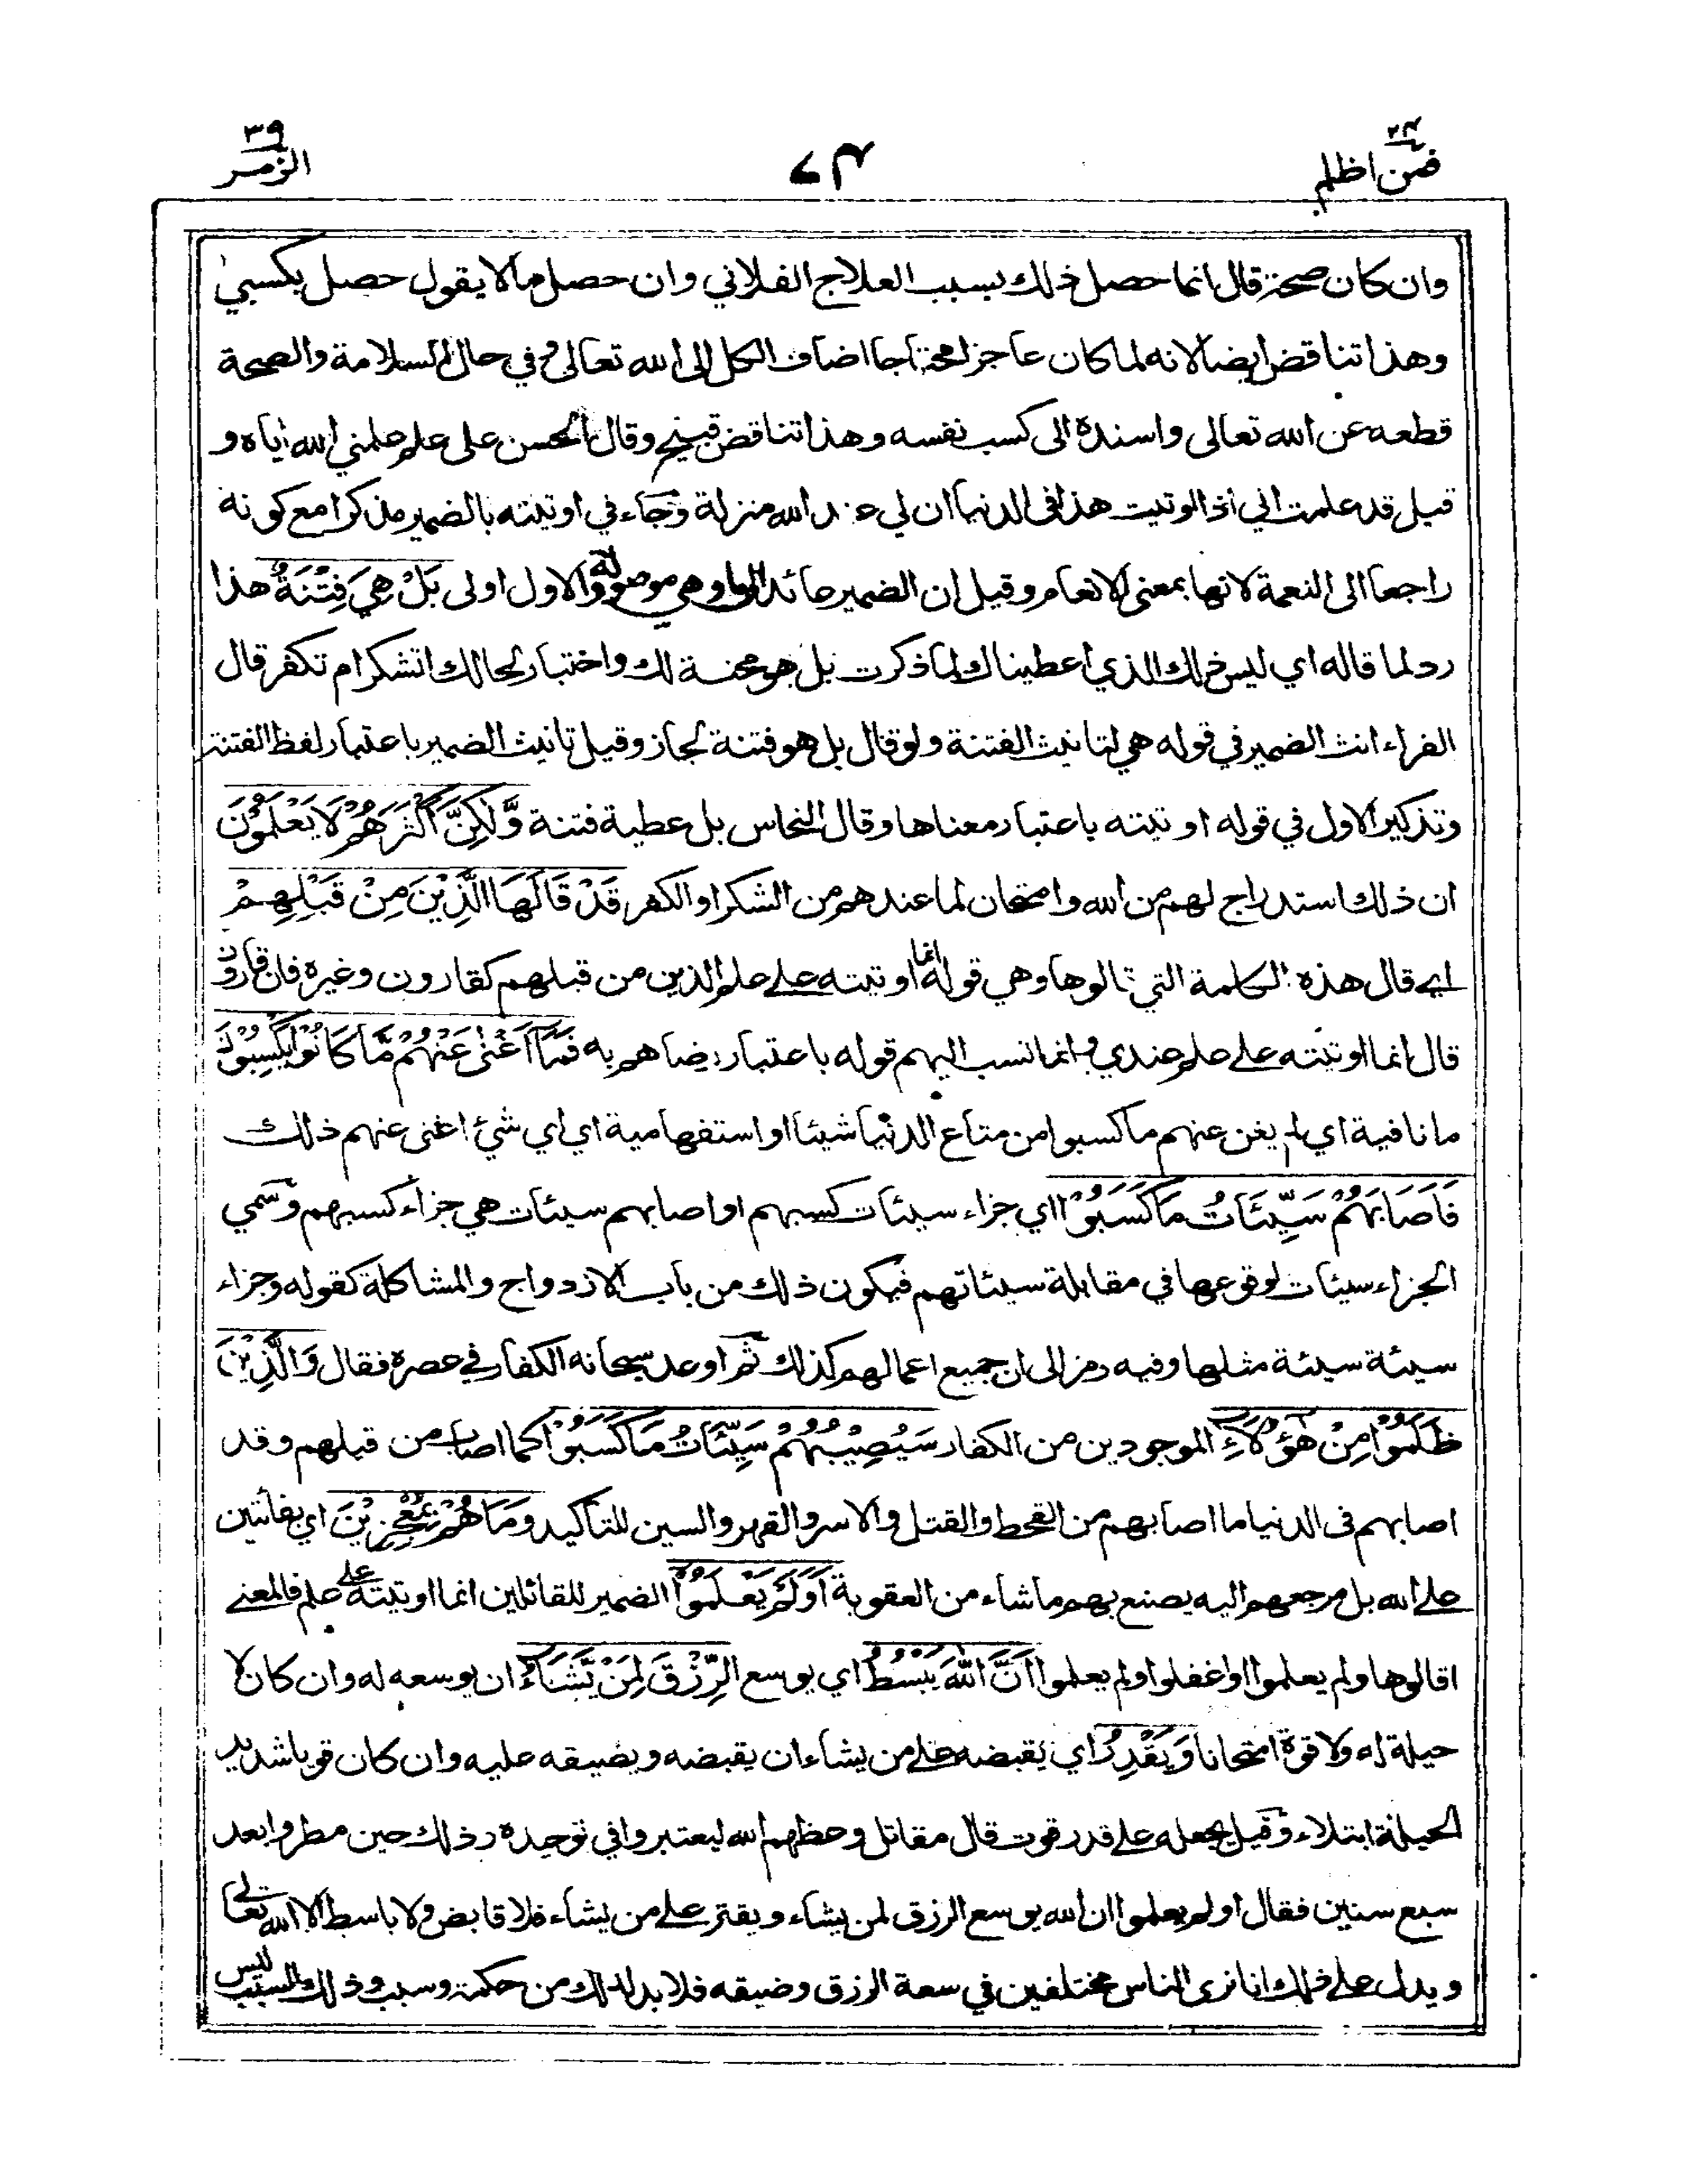 فمن اظلم ٢٤
٧٤
الزمر ٣٩
وان كان صحة قال انما حصل ذلك بسبب العلاج الفلاني وان حصل مالا يقول حصل بكسبي
وهذا تناقض ايضا لانه لما كان عاجزا محتاجا اضاف الكل الى الله تعالى وفي حال السلامة والصحة
قطعه عن الله تعالى واسنده الى كسب نفسه وهذا تناقض قبيح وقال الحسن على علم علمني الله اياه و
قيل قد علمت اني اذا اوتيت هذا في الدنيا ان لي عند الله منزلة وجاء في اوتيته بالضمير مذكرا مع كونه
راجعا الى النعمة لانها بمعنى الانعام وقيل ان الضمير عائد الى ما وهي موصولة والاول اولى بَلْ هِيَ فِتْنَةٌ هذا
رد لما قاله اي ليس ذلك الذي اعطيناك لما ذكرت بل هو محنة لك واختبار لحالك اتشكر ام تكفر قال
الفراء انث الضمير في قوله هي لتانيث الفتنة ولو قال بل هو فتنة لجاز وقيل تانيث الضمير باعتبار لفظ الفتنة
وتذكير الاول في قوله اوتيته باعتبار معناها وقال النحاس بل عطية فتنة وَّلٰكِنَّ اَكْثَرَهُمْ لَا يَعْلَمُوْنَ
ان ذلك استدراج لهم من الله وامتحان لما عندهم من الشكر او الكفر قَدْ قَالَهَا الَّذِيْنَ مِنْ قَبْلِهِمْ
اي قال هذه الكلمة التي قالوها وهي قوله انما اوتيته على علم الذين من قبلهم كقارون وغيره فان قارون
قال انما اوتيته على علم عندي وانما نسب اليهم قوله باعتبار رضاهم به فَمَآ اَغْنٰى عَنْهُمْ مَّا كَانُوْا يَكْسِبُوْنَ
ما نافية اي لم يغن عنهم ما كسبوا من متاع الدنيا شيئا او استفهامية اي اي شيئ اغنى عنهم ذلك
فَاَصَابَهُمْ سَيِّئَاتُ مَا كَسَبُوْا اي جزاء سيئات كسبهم او اصابهم سيئات هي جزاء كسبهم وسمي
الجزاء سيئات لوقوعها في مقابلة سيئاتهم فيكون ذلك من باب الازدواج والمشاكلة كقوله وجزاء
سيئة سيئة مثلها وفيه رمز الى ان جميع اعمالهم كذلك ثم اوعد سبحانه الكفار في عصره فقال وَالَّذِيْنَ
ظَلَمُوْا مِنْ هٰٓؤُلَآءِ الموجودين من الكفار سَيُصِيْبُهُمْ سَيِّئَاتُ مَا كَسَبُوْا كما اصاب من قبلهم وقد
اصابهم في الدنيا ما اصابهم من القحط والقتل والاسر والقهر والسين للتاكيد وَمَا هُمْ بِمُعْجِزِيْنَ اي بفائتين
على الله بل مرجعهم اليه يصنع بهم ما شاء من العقوبة اَوَلَمْ يَعْلَمُوْا الضمير للقائلين انما اوتيته على علم فالمعنى
اقالوها ولم يعلموا او اغفلوا ولم يعلموا اَنَّ اللّٰهَ يَبْسُطُ اي يوسع الرِّزْقَ لِمَنْ يَّشَاءُ ان يوسعه له وان كان لا
حيلة له ولا قوة امتحانا وَيَقْدِرُ اي يقبضه على من يشاء ان يقبضه ويضيقه عليه وان كان قويا شديد
الحيلة ابتلاء وقيل يجعله على قدر قوت قال مقاتل وعظهم الله ليعتبروا في توحيده وذلك حين مطروا بعد
سبع سنين فقال اولم يعلموا ان الله يوسع الرزق لمن يشاء ويقتر على من يشاء فلا قابض ولا باسط الا الله تعالى
ويدل على ذلك انا نرى الناس مختلفين في سعة الرزق وضيقه فلا بد لذلك من حكمة وسبب وذلك السبب ليس